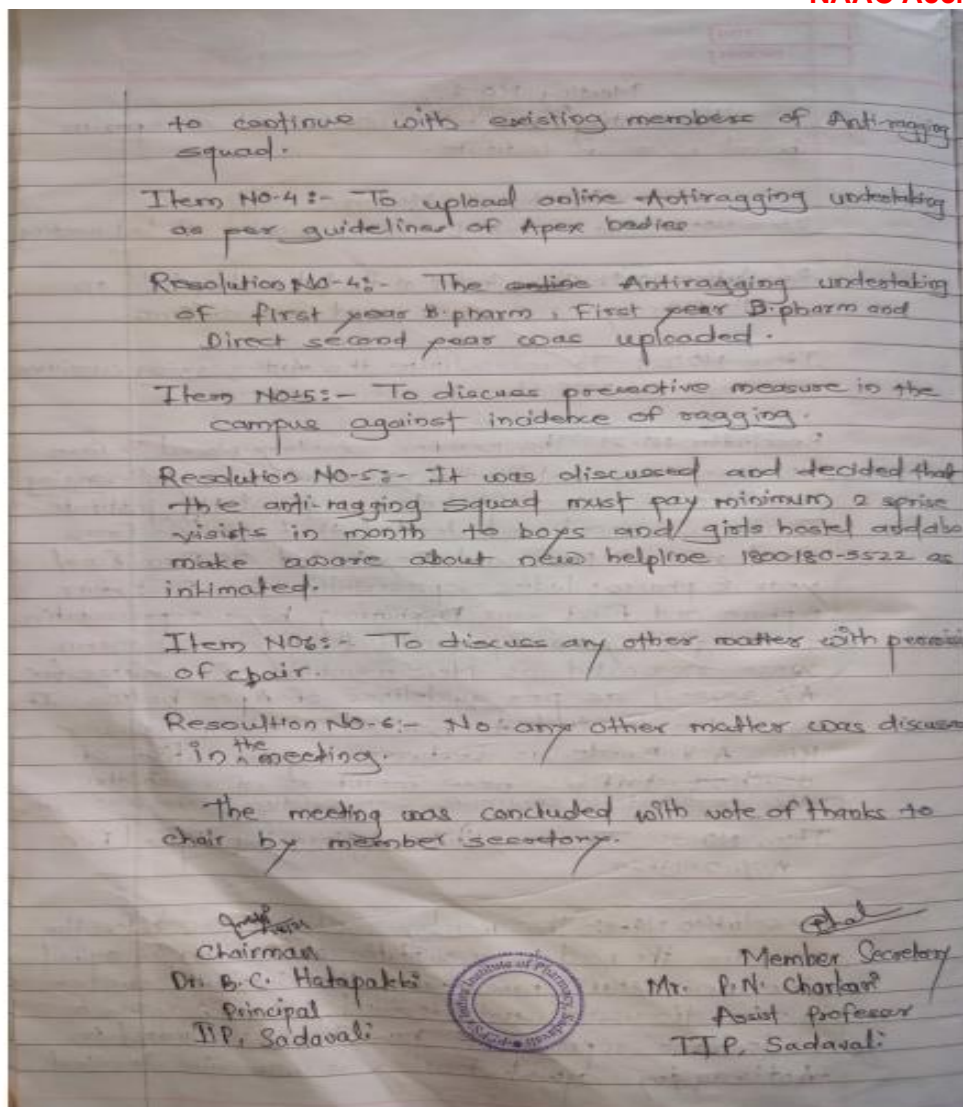 to continue with existing members of Anti-ragging
squad.
Item No-4:- To upload online Antiragging undertaking
as per guidelines of Apex bodies
Resolution No-4:- The online Antiragging undertaking
of first year B.pharm, First year B.pharm and
Direct second year was uploaded.
Item No-5:- To discuss preventive measure in the
campus against incidence of ragging.
Resolution No-5:- It was discussed and decided that
the anti-ragging squad must pay minimum 2 sprise
visists in month to boys and girls hostel and also
make aware about new helpline 1800180-5522 as
intimated.
Item No6:- To discuss any other matter with
of chair.
Resoultion No-6:- No any other matter was
in the meeting.
The meeting was concluded with vote of thanks to
chair by member secretory.
Chairman
Dr. B.C. Hatapakki
Principal
IIP, Sadavali
Institute of Pharmacy
Member Secretary
Mr. P.N. Charkari
Assist Profesar
IIP, Sadavali